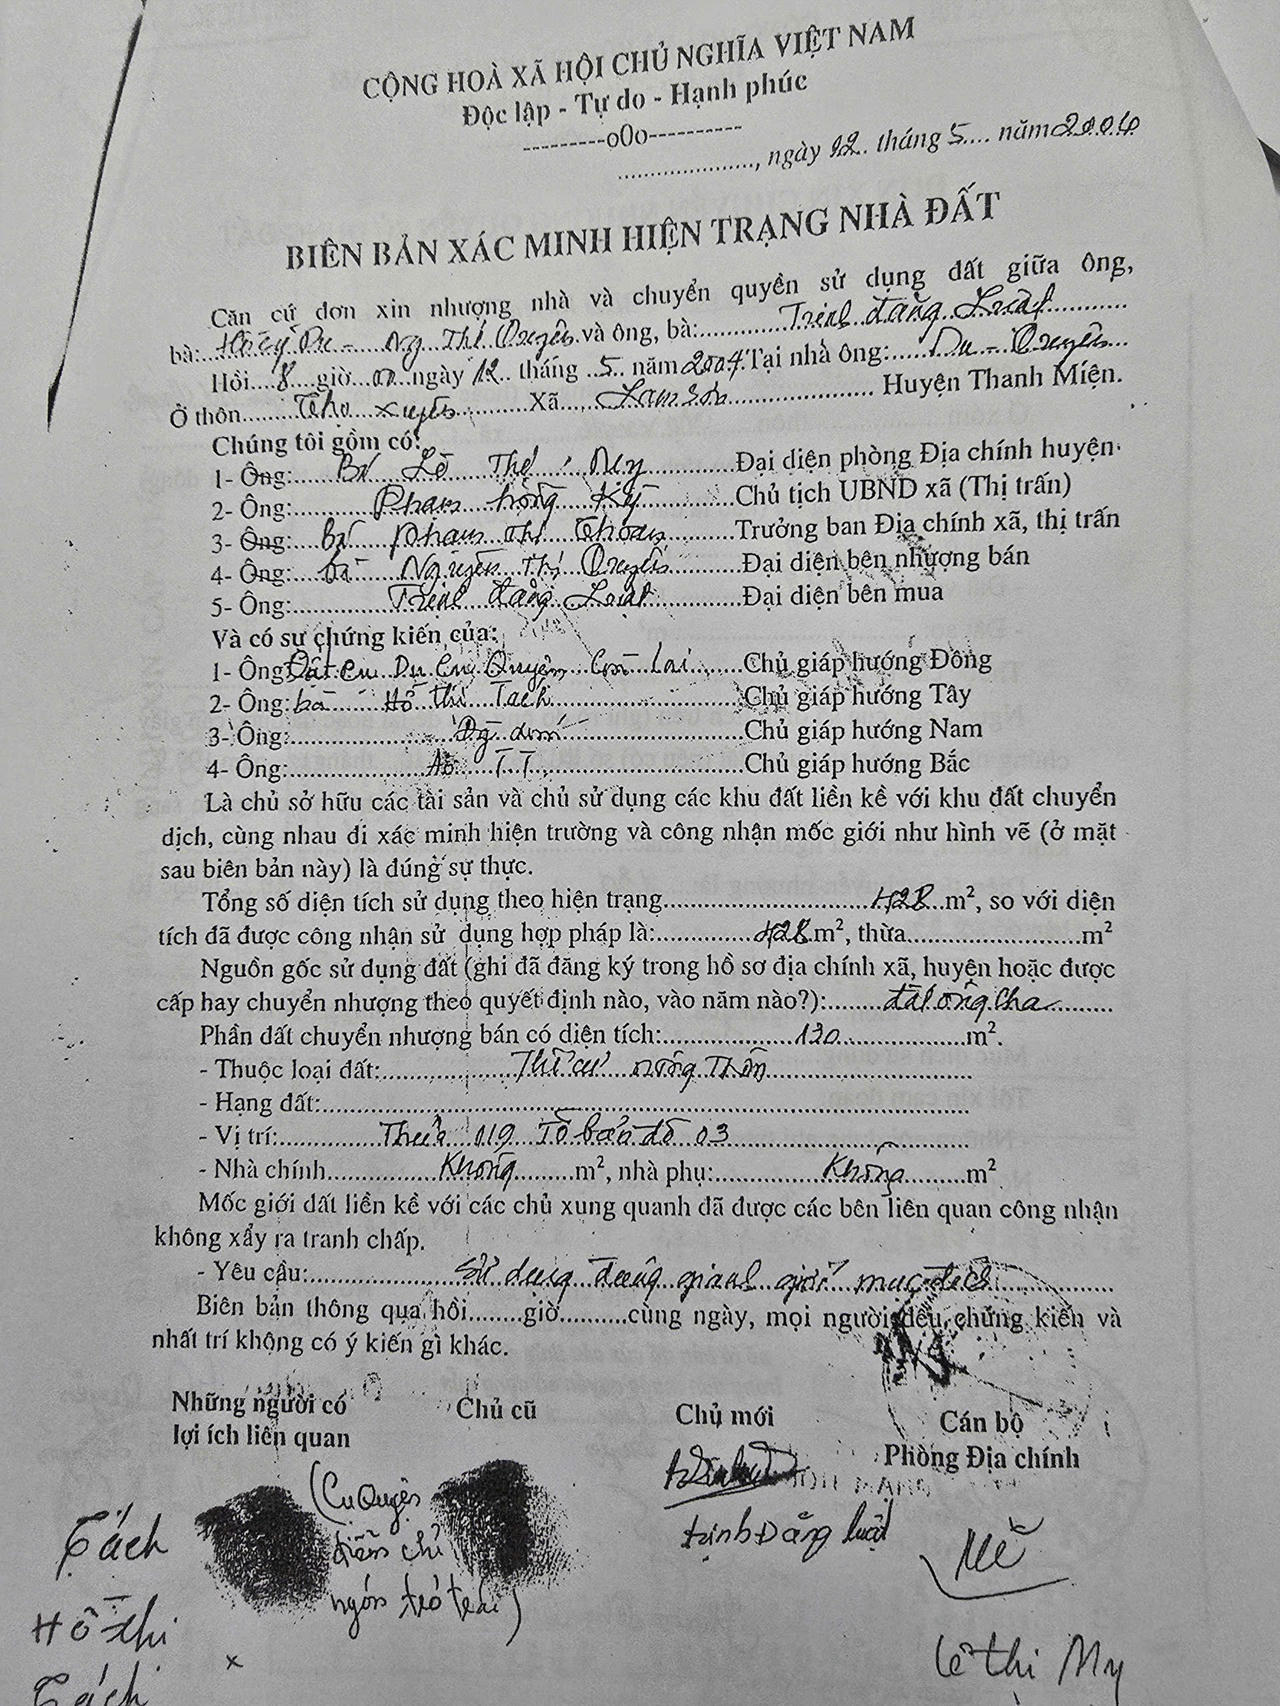 CỘNG HOÀ XÃ HỘI CHỦ NGHĨA VIỆT NAM
Độc lập - Tự do - Hạnh phúc
---------o0o----------
...................., ngày 12.. tháng 5.... năm 2004
BIÊN BẢN XÁC MINH HIỆN TRẠNG NHÀ ĐẤT
Căn cứ đơn xin nhượng nhà và chuyển quyền sử dụng đất giữa ông,
bà: Du - Ng Thị Quyên và ông, bà: Trịnh đăng Luật
Hồi....8....giờ...00...ngày 12.. tháng ..5.. năm 2004. Tại nhà ông: Du - Quyên
Ở thôn Thọ xuyên Xã Lam Sơn Huyện Thanh Miện.
Chúng tôi gồm có:
1- Ông: Bà Lê Thị My Đại diện phòng Địa chính huyện
2- Ông: Phạm hồng Kỳ Chủ tịch UBND xã (Thị trấn)
3- Ông: Bà phạm thị Thoan Trưởng ban Địa chính xã, thị trấn
4- Ông: bà Nguyễn Thị Quyên Đại diện bên nhượng bán
5- Ông: Trịnh đăng Luật Đại diện bên mua
Và có sự chứng kiến của:
1- Ông Đất cụ Du cụ Quyên còn lại Chủ giáp hướng Đông
2- Ông: bà Hồ thị Tách Chủ giáp hướng Tây
3- Ông: Chủ giáp hướng Nam
4- Ông: Ao T.T Chủ giáp hướng Bắc
Là chủ sở hữu các tài sản và chủ sử dụng các khu đất liền kề với khu đất chuyển
dịch, cùng nhau đi xác minh hiện trường và công nhận mốc giới như hình vẽ (ở mặt
sau biên bản này) là đúng sự thực.
Tổng số diện tích sử dụng theo hiện trạng 428 m², so với diện
tích đã được công nhận sử dụng hợp pháp là: 428 m², thừa m²
Nguồn gốc sử dụng đất (ghi đã đăng ký trong hồ sơ địa chính xã, huyện hoặc được
cấp hay chuyển nhượng theo quyết định nào, vào năm nào?): đất ông cha
Phần đất chuyển nhượng bán có diện tích: 120 m².
- Thuộc loại đất: Thổ cư nông Thôn
- Hạng đất:
- Vị trí: Thửa 019 Tờ bản đồ 03
- Nhà chính Không m², nhà phụ: Không m²
Mốc giới đất liền kề với các chủ xung quanh đã được các bên liên quan công nhận
không xẩy ra tranh chấp.
- Yêu cầu: Sử dụng đúng ranh giới mục đích
Biên bản thông qua hồi.......giờ..........cùng ngày, mọi người đều chứng kiến và
nhất trí không có ý kiến gì khác.
Những người có Chủ cũ Chủ mới Cán bộ
lợi ích liên quan Phòng Địa chính
(Cụ Quyên
điểm chỉ
ngón trỏ trái)
Tách
Hồ Thị
Tách
trịnh Đăng luật
Mỳ
Lê Thị My